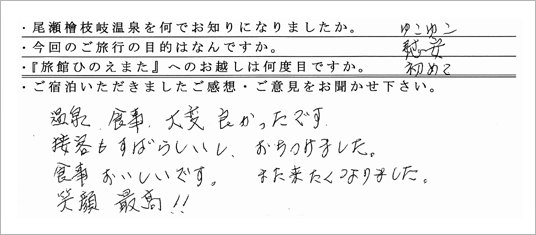 ・尾瀬檜枝岐温泉を何でお知りになりましたか。 ゆこゆこ
・今回のご旅行の目的はなんですか。 慰安
・『旅館ひのえまた』へのお越しは何度目ですか。 初めて
・ご宿泊いただきましたご感想・ご意見をお聞かせ下さい。
温泉、食事、大変良かったです
接客もすばらしいし、おちつけました。
食事おいしいです。 また来たくなりました。
笑顔 最高!!